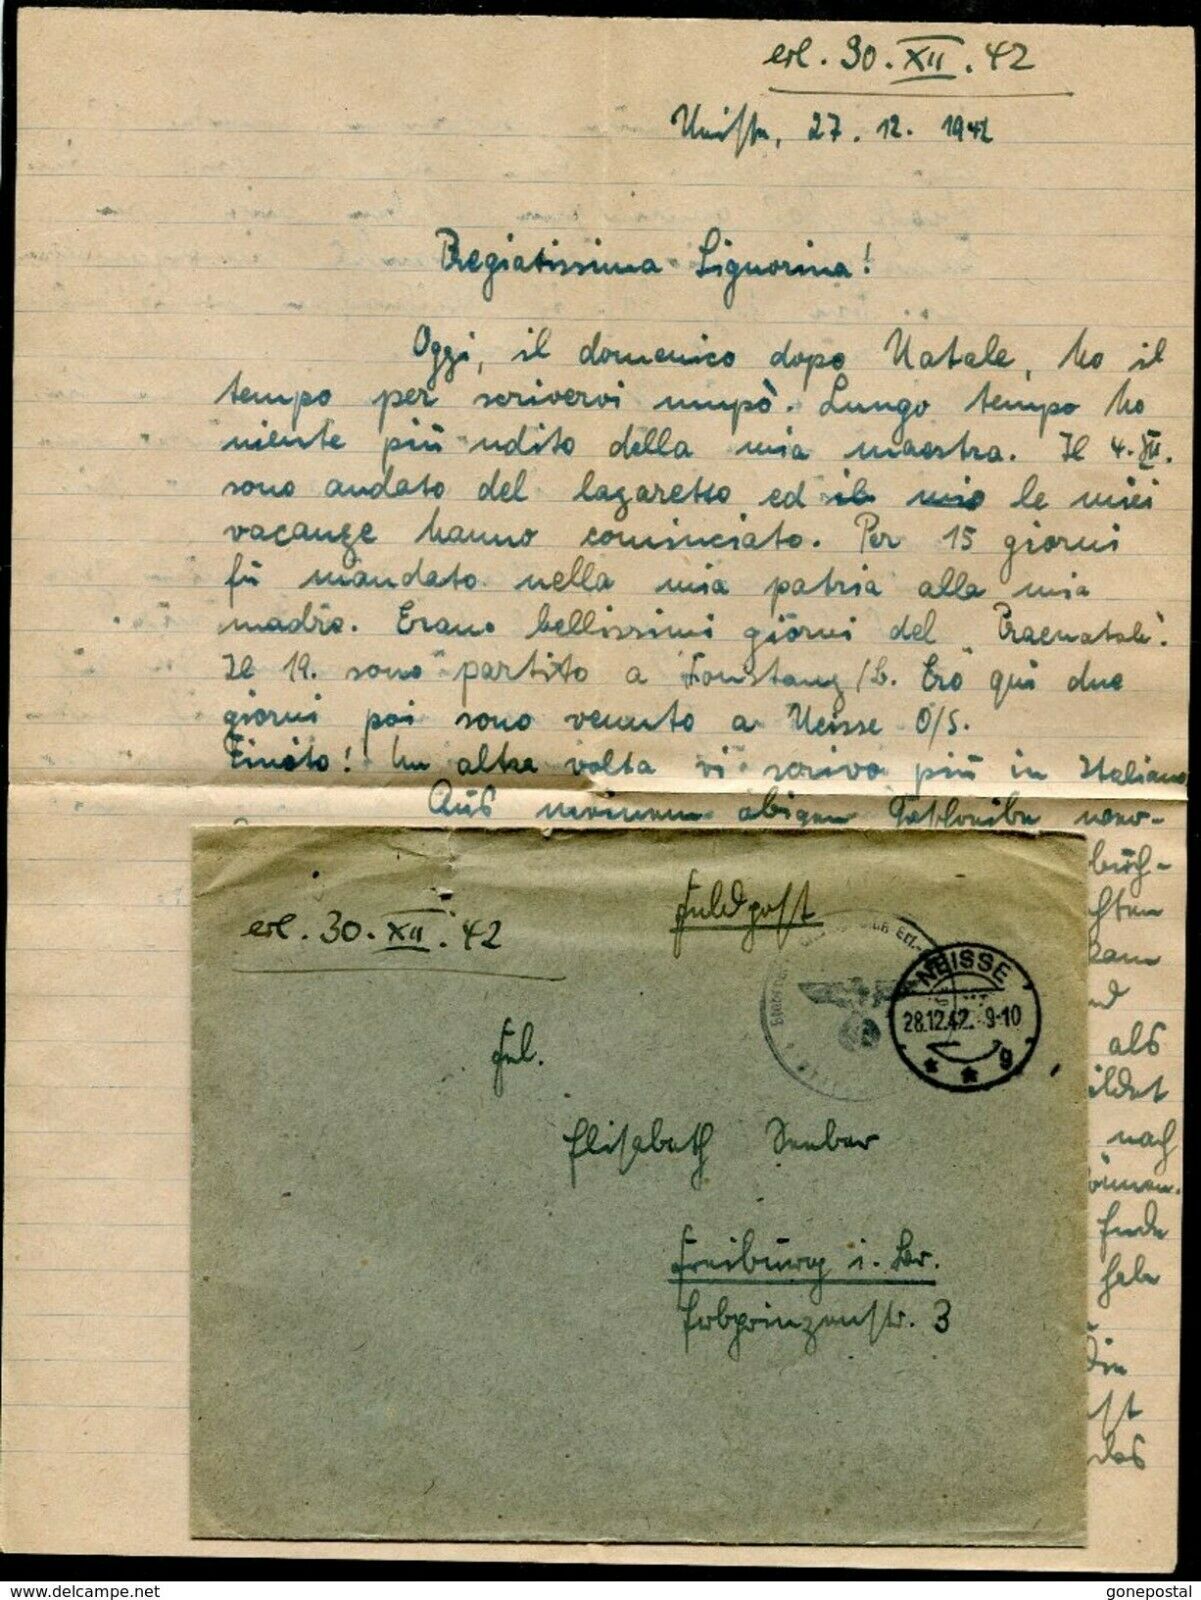 erl. 30. XII. 42
Neisse, 27. 12. 1942
Pregiatissima Signorina!
Oggi, il domenico dopo Natale, ho il
tempo per scrivervi unupò. Lungo tempo ho
niente più udito della mia maestra. Il 4. XII.
sono andato del lazaretto ed il mio le miei
vacanze hanno cominciato. Per 15 giorni
fù mandato nella mia patria alla mia
madre. Erano bellissimi giorni del Praenatale.
Il 19. sono partito a Konstanz/B. Ero qui due
giorni poi sono venuto a Neisse O/S.
Finito! Un altra volta vi scrivo più in Italiano
Aus meinem obigen Geschreibe wer-
büch-
kam
als
ildet
nach
können.
habe
Die
das
erl. 30. XII. 42
Feldpost
NEISSE
28.12.42. 9-10
g
Frl.
Elisabeth
Freiburg i. Br.
Erbprinzenstr. 3
gonepostal